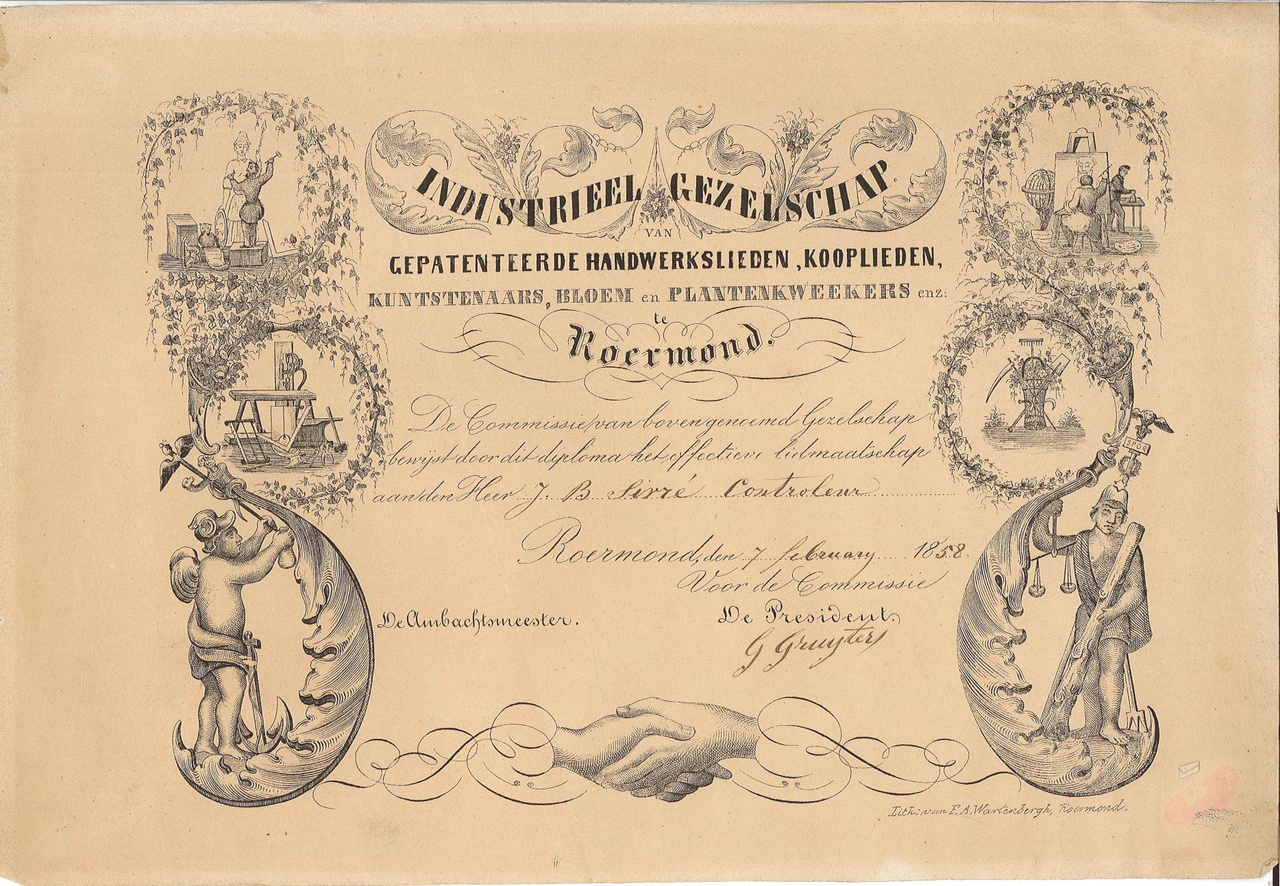 INDUSTRIEEL GEZELSCHAP.
VAN
GEPATENTEERDE HANDWERKSLIEDEN, KOOPLIEDEN,
KUNTSTENAARS, BLOEM en PLANTENKWEEKERS enz:
te
Roermond.
De Commissie van bovengenoemd Gezelschap
bewijst door dit diploma het effective lidmaatschap
aan den Heer J. B Sirré Controleur
Roermond, den 7 february 1858.
Voor de Commissie
De Ambachtsmeester. De President.
G Gruyters
Lith: van F. A. Wartenbergh, Roermond.